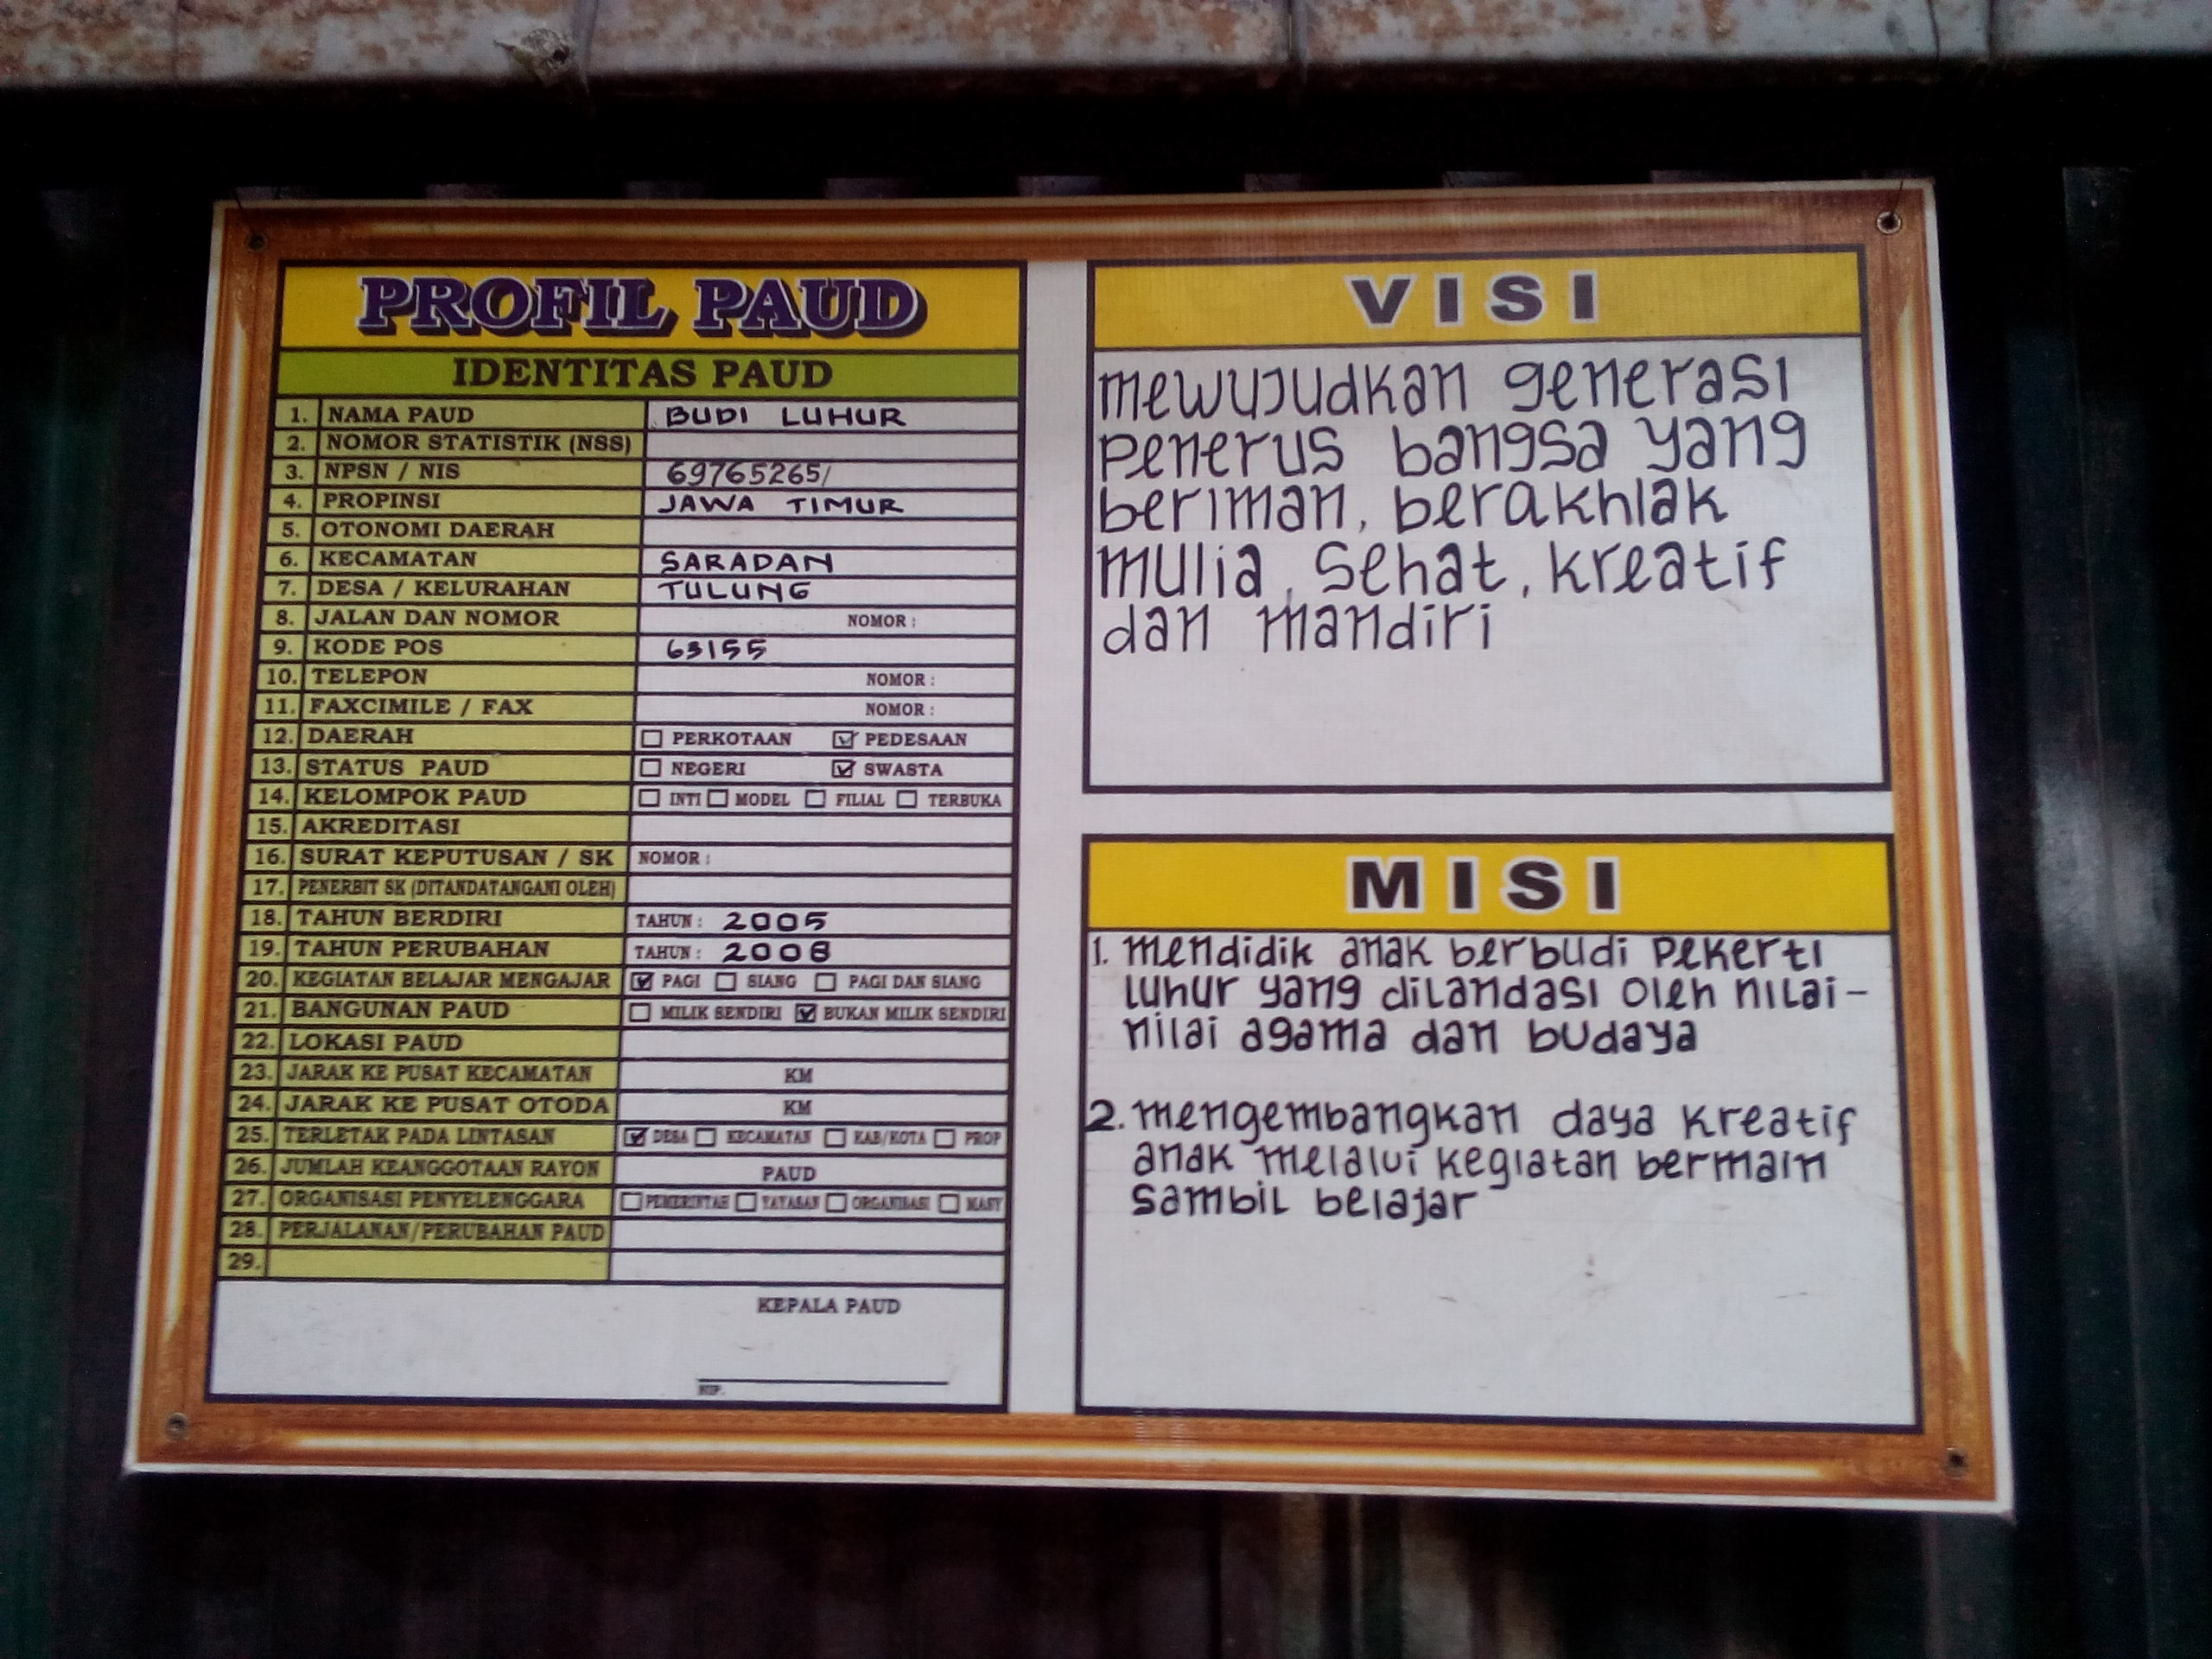 PROFIL PAUD
IDENTITAS PAUD
1. NAMA PAUD BUDI LUHUR
2. NOMOR STATISTIK (NSS)
3. NPSN / NIS 69765265/
4. PROPINSI JAWA TIMUR
5. OTONOMI DAERAH
6. KECAMATAN SARADAN
7. DESA / KELURAHAN TULUNG
8. JALAN DAN NOMOR NOMOR :
9. KODE POS 63155
10. TELEPON NOMOR :
11. FAXCIMILE / FAX NOMOR :
12. DAERAH PERKOTAAN PEDESAAN
13. STATUS PAUD NEGERI SWASTA
14. KELOMPOK PAUD INTI MODEL FILIAL TERBUKA
15. AKREDITASI
16. SURAT KEPUTUSAN / SK NOMOR :
17. PENERBIT SK (DITANDATANGANI OLEH)
18. TAHUN BERDIRI TAHUN : 2005
19. TAHUN PERUBAHAN TAHUN : 2008
20. KEGIATAN BELAJAR MENGAJAR PAGI SIANG PAGI DAN SIANG
21. BANGUNAN PAUD MILIK SENDIRI BUKAN MILIK SENDIRI
22. LOKASI PAUD
23. JARAK KE PUSAT KECAMATAN KM
24. JARAK KE PUSAT OTODA KM
25. TERLETAK PADA LINTASAN DESA KECAMATAN KAB/KOTA PROP
26. JUMLAH KEANGGOTAAN RAYON PAUD
27. ORGANISASI PENYELENGGARA PEMERINTAH YAYASAN ORGANISASI MASY
28. PERJALANAN/PERUBAHAN PAUD
29.
KEPALA PAUD
NIP.
VISI
mewujudkan generasi
penerus bangsa yang
beriman, berakhlak
mulia, sehat, kreatif
dan mandiri
MISI
1. mendidik anak berbudi pekerti
luhur yang dilandasi oleh nilai-
nilai agama dan budaya
2. mengembangkan daya kreatif
anak melalui kegiatan bermain
sambil belajar